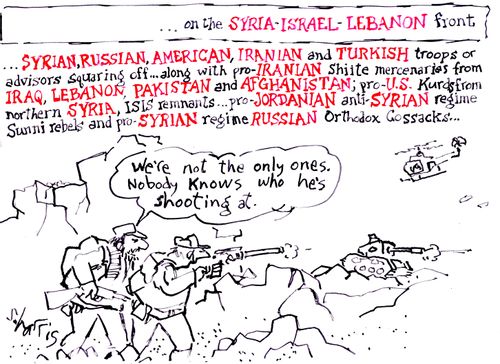 ... on the SYRIA-ISRAEL-LEBANON front
...SYRIAN, RUSSIAN, AMERICAN, IRANIAN and TURKISH troops or
advisors squaring off...along with pro-IRANIAN Shiite mercenaries from
IRAQ, LEBANON, PAKISTAN and AFGHANISTAN; pro-U.S. Kurds from
northern SYRIA, ISIS remnants...pro-JORDANIAN anti-SYRIAN regime
Sunni rebels and pro-SYRIAN regime RUSSIAN Orthodox Cossacks...
We're not the only ones.
Nobody knows who he's
shooting at.